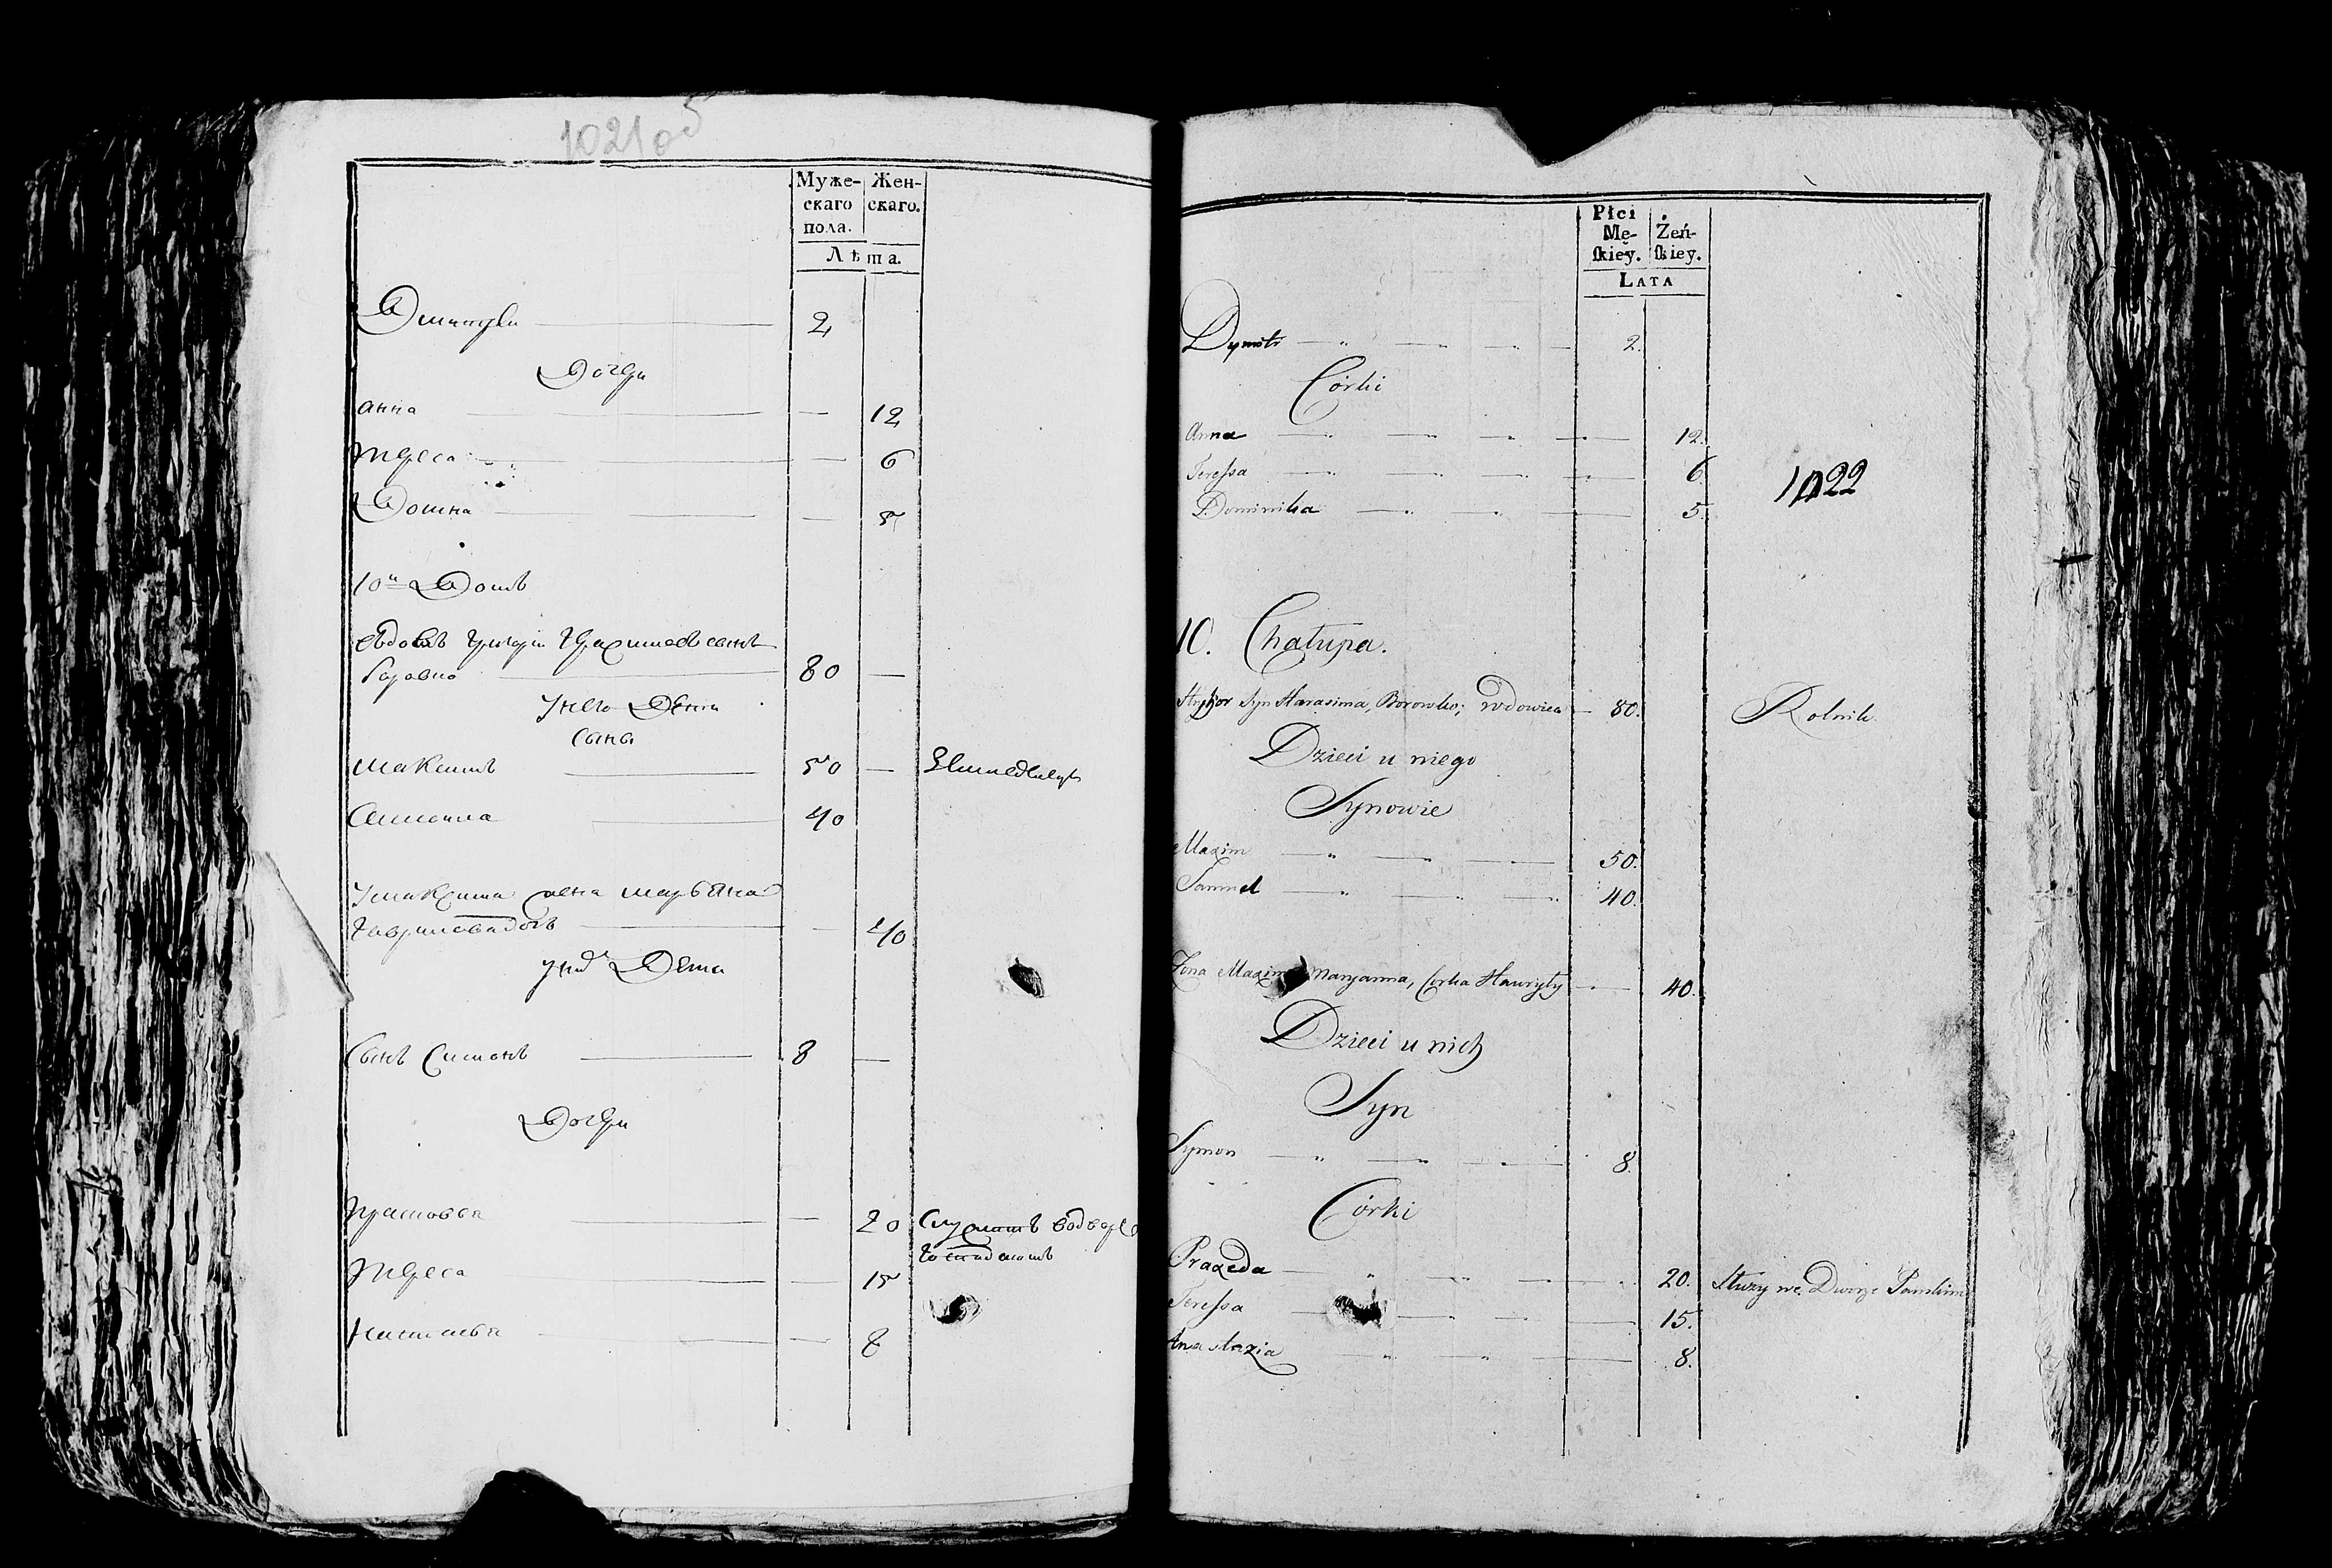 1021об
Муже- Жен-
скаго скаго.
пола.
Лѣта.
Дмитри 2
Дочери
анна — 12
тереса — 6
Домна — 5
10й Домъ
вдовъ григори
80 —
У него Дети
сыны
максимъ 50 — Земледелецъ
40
У максима жена марьяна
— 40
Дети
Сынъ Симонъ 8 —
Дочери
— 20 Служитъ
Тереса — 15
— 8
Płci
Mę- Żeń-
skiey. skiey.
LATA
Dymitr 2.
Córki
Anna 12.
Teressa 6
Dominika 5.
1022
10. Chałupa.
Hryhor Syn Harasima, Borowko; wdowiec 80. Rolnik
Dzieci u niego
Synowie
Maxim 50.
Samuel 40.
Żona Maxima Maryanna, Corka Hawryły 40.
Dzieci u nich
Syn
Symon 8.
Córki
Praxeda 20. Służy we Dworze Pańskim
Teressa 15.
Anastazia 8.